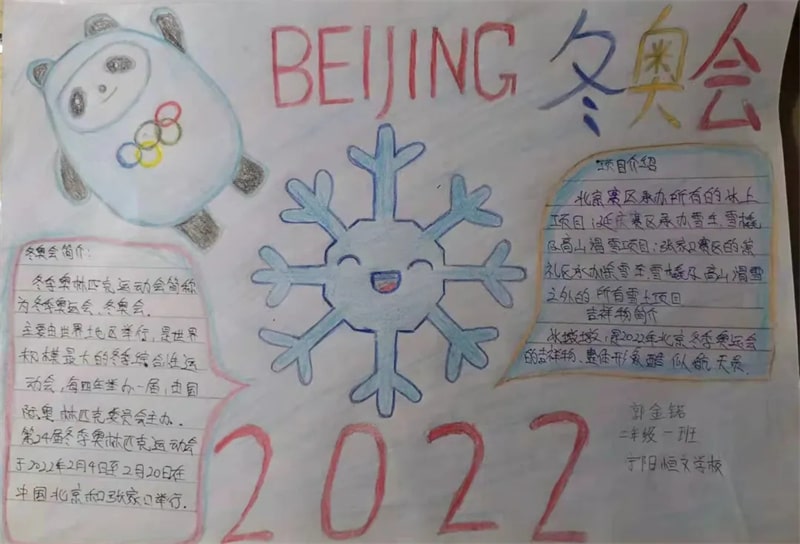 BEIJING 冬奥会
冬奥会简介:
冬季奥林匹克运动会简称
为冬季奥运会、冬奥会.
主要由世界地区举行,是世界
规模最大的冬季综合性运
动会,每四年举办一届,由国
际奥林匹克委员会主办.
第24届冬季奥林匹克运动会
于2022年2月4日至2月20日在
中国北京和张家口举行.
项目介绍
北京赛区承办所有的冰上
项目;延庆赛区承办雪车、雪橇
及高山滑雪项目;张家口赛区的崇
礼区承办除雪车雪橇及高山滑雪
之外的所有雪上项目
吉祥物简介
冰墩墩,是2022年北京冬季奥运会
的吉祥物.整体形象酷似航天员.
2022
郭金
二年级一班
宁阳恒文学校